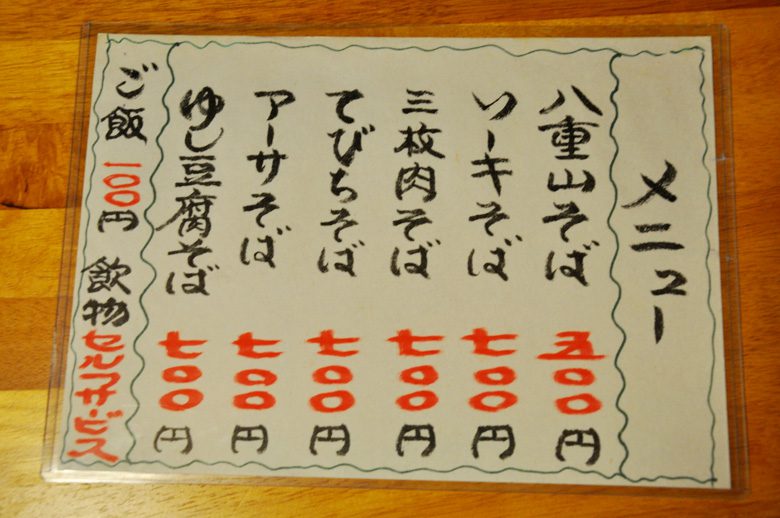 メニュー
八重山そば 五〇〇円
ソーキそば 七〇〇円
三枚肉そば 七〇〇円
てびちそば 七〇〇円
アーサそば 七〇〇円
ゆし豆腐そば 七〇〇円
ご飯 一〇〇円 飲物セルフサービス